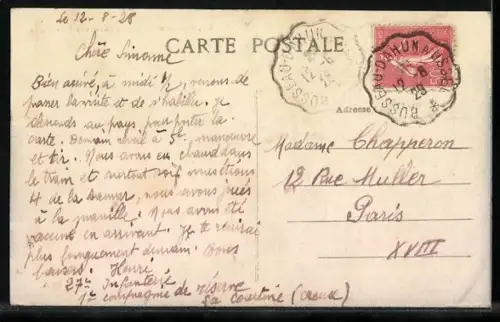 Le 12-8-28
CARTE POSTALE
Chère Simone
Bien arrivé, à midi ½, venons de
passer la visite et de s'habiller. Je
descends au pays pour porter la
carte. Demain réveil à 5h, manœuvre
et tir. Nous avons eu chaud dans
le train et surtout soif
4 de la
à la manille. Nous avons été
vaccinés en arrivant. Je t'écrirai
plus longuement demain. Bons
baisers. Henri
27e Infanterie
1e compagnie de réserve
La Courtine (Creuse)
BUSSEAU-D'AHUN
12-8
28
BUSSEAU-D'AHUN A USSEL
12-8
28
Adresse
Madame Chapperon
12 Rue Muller
Paris
XVIII